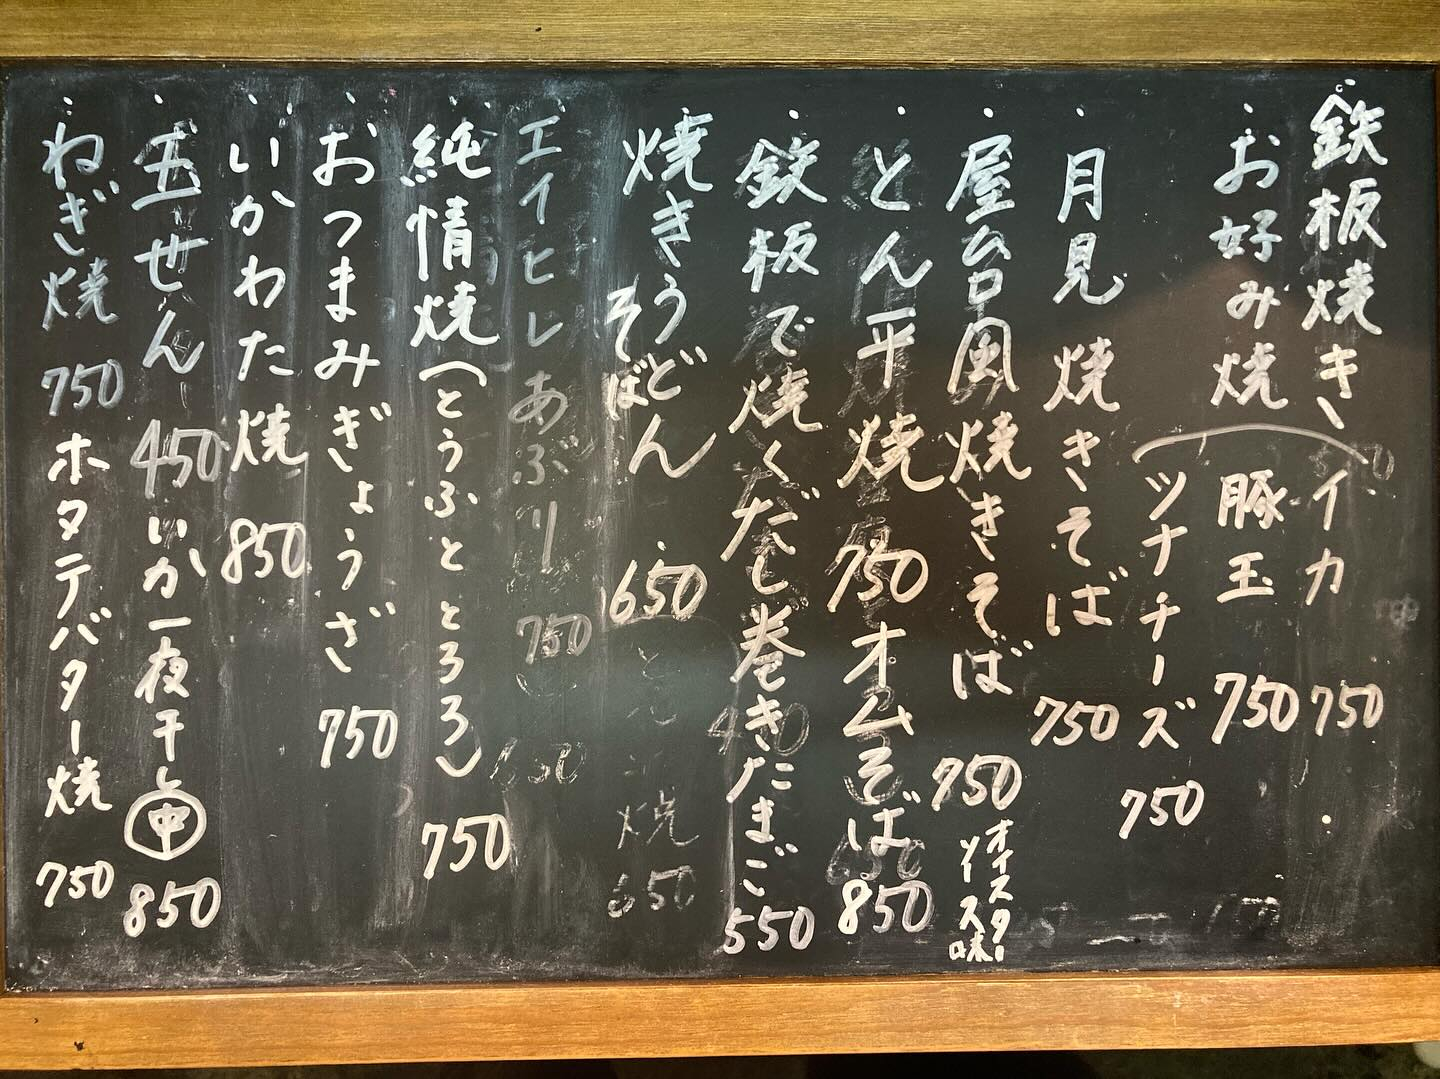 鉄板焼き イカ 750
お好み焼 豚玉 750
ツナチーズ 750
月見焼きそば 750
屋台風焼きそば 750
オイスター
ソース味
とん平焼 750 オムそば 850
鉄板で焼くだし巻きたまご 550
焼きうどん
そば 650
エイヒレあぶり 750
純情焼(とうふととろろ) 750
おつまみぎょうざ 750
いかわた焼 850
玉せん 450 いか一夜干し㊥ 850
ねぎ焼 750 ホタテバター焼 750